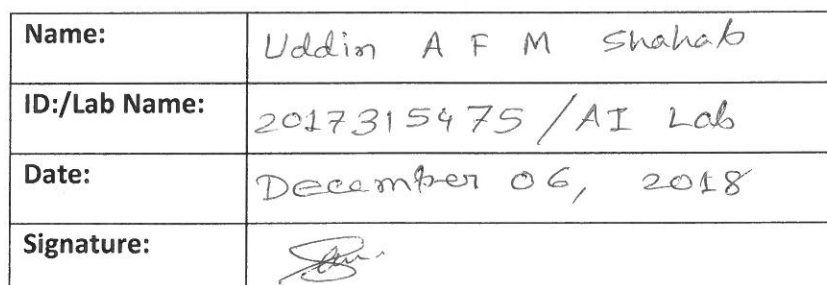 Name: Uddin A F M Shahab
ID:/Lab Name: 2017315475 / AI Lab
Date: December 06, 2018
Signature: